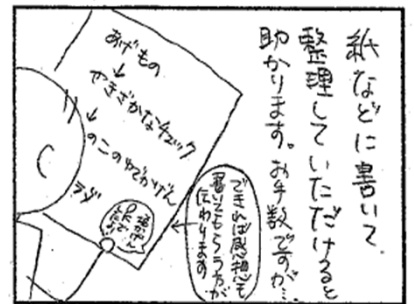 紙などに書いて、
整理していただけると
助かります。お手数ですが…
できれば感想も
書いてもらう方が
伝わります
あげもの
↓
やきざかなチェック
↓
のこのゆでかげん